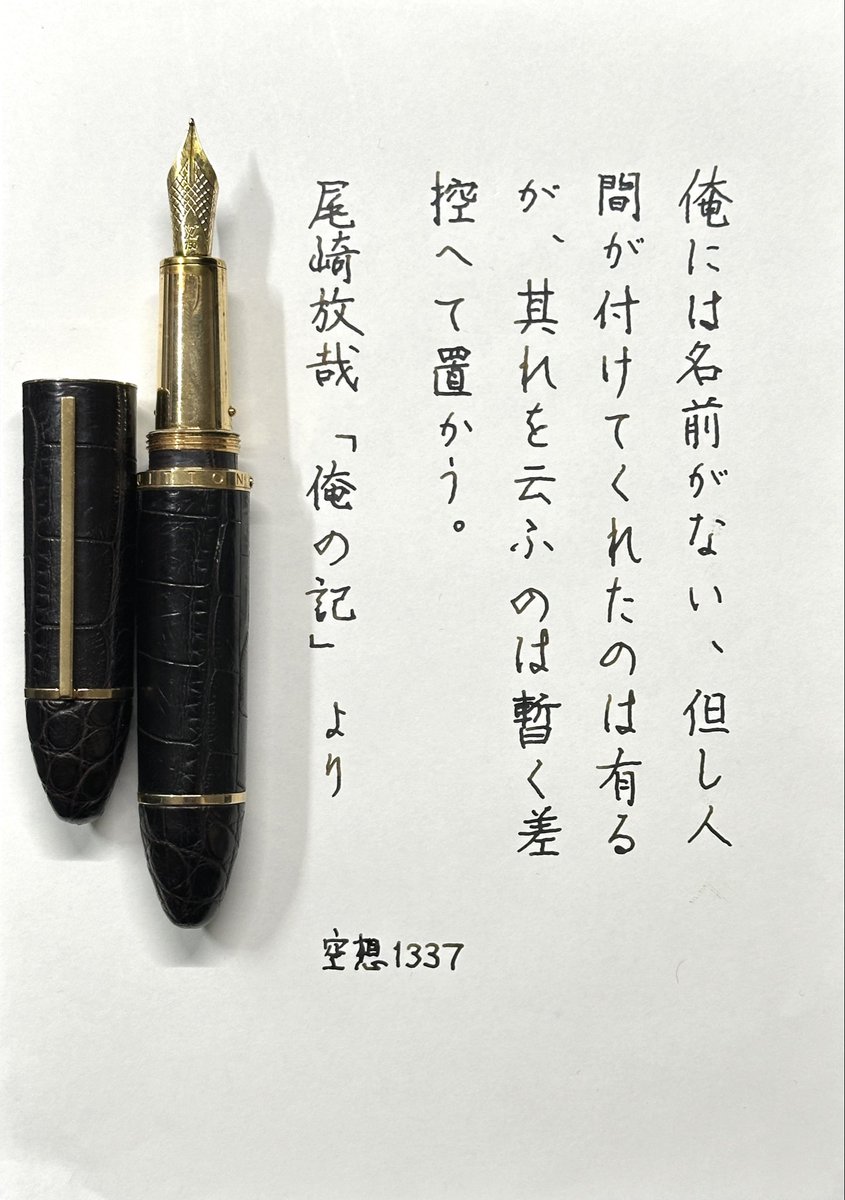 俺には名前がない、但し人
間が付けてくれたのは有る
が、其れを云ふのは暫く差
控へて置かう。
尾崎放哉「俺の記」より
空想1337